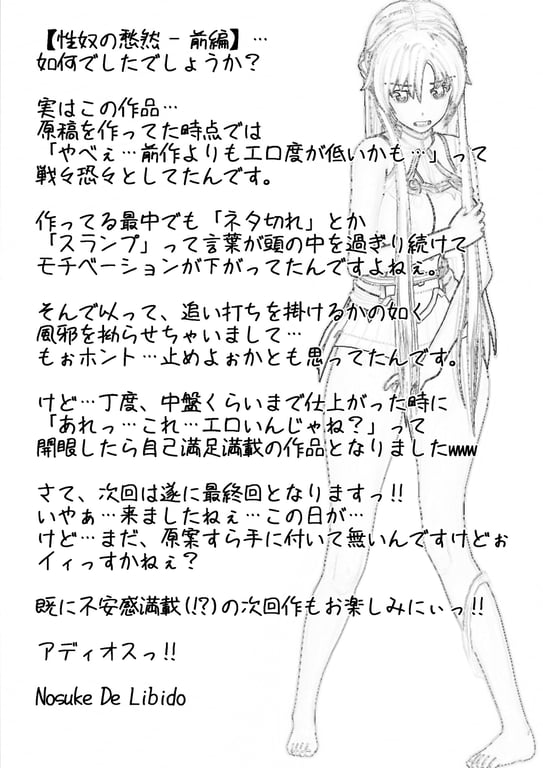 【性奴の愁然 - 前編】…
如何でしたでしょうか?
実はこの作品…
原稿を作ってた時点では
「やべぇ…前作よりもエロ度が低いかも…」って
戦々恐々としてたんです。
作ってる最中でも「ネタ切れ」とか
「スランプ」って言葉が頭の中を過ぎり続けて
モチベーションが下がってたんですよねぇ。
そんで以って、追い打ちを掛けるかの如く
風邪を拗らせちゃいまして…
もぉホント…止めよぉかとも思ってたんです。
けど…丁度、中盤くらいまで仕上がった時に
「あれっ…これ…エロいんじゃね?」って
開眼したら自己満足満載の作品となりましたwww
さて、次回は遂に最終回となりますっ!!
いやぁ…来ましたねぇ…この日が…
けど…まだ、原案すら手に付いて無いんですけどぉ
イィっすかねぇ?
既に不安感満載(!?)の次回作もお楽しみにぃっ!!
アディオスっ!!
Nosuke De Libido